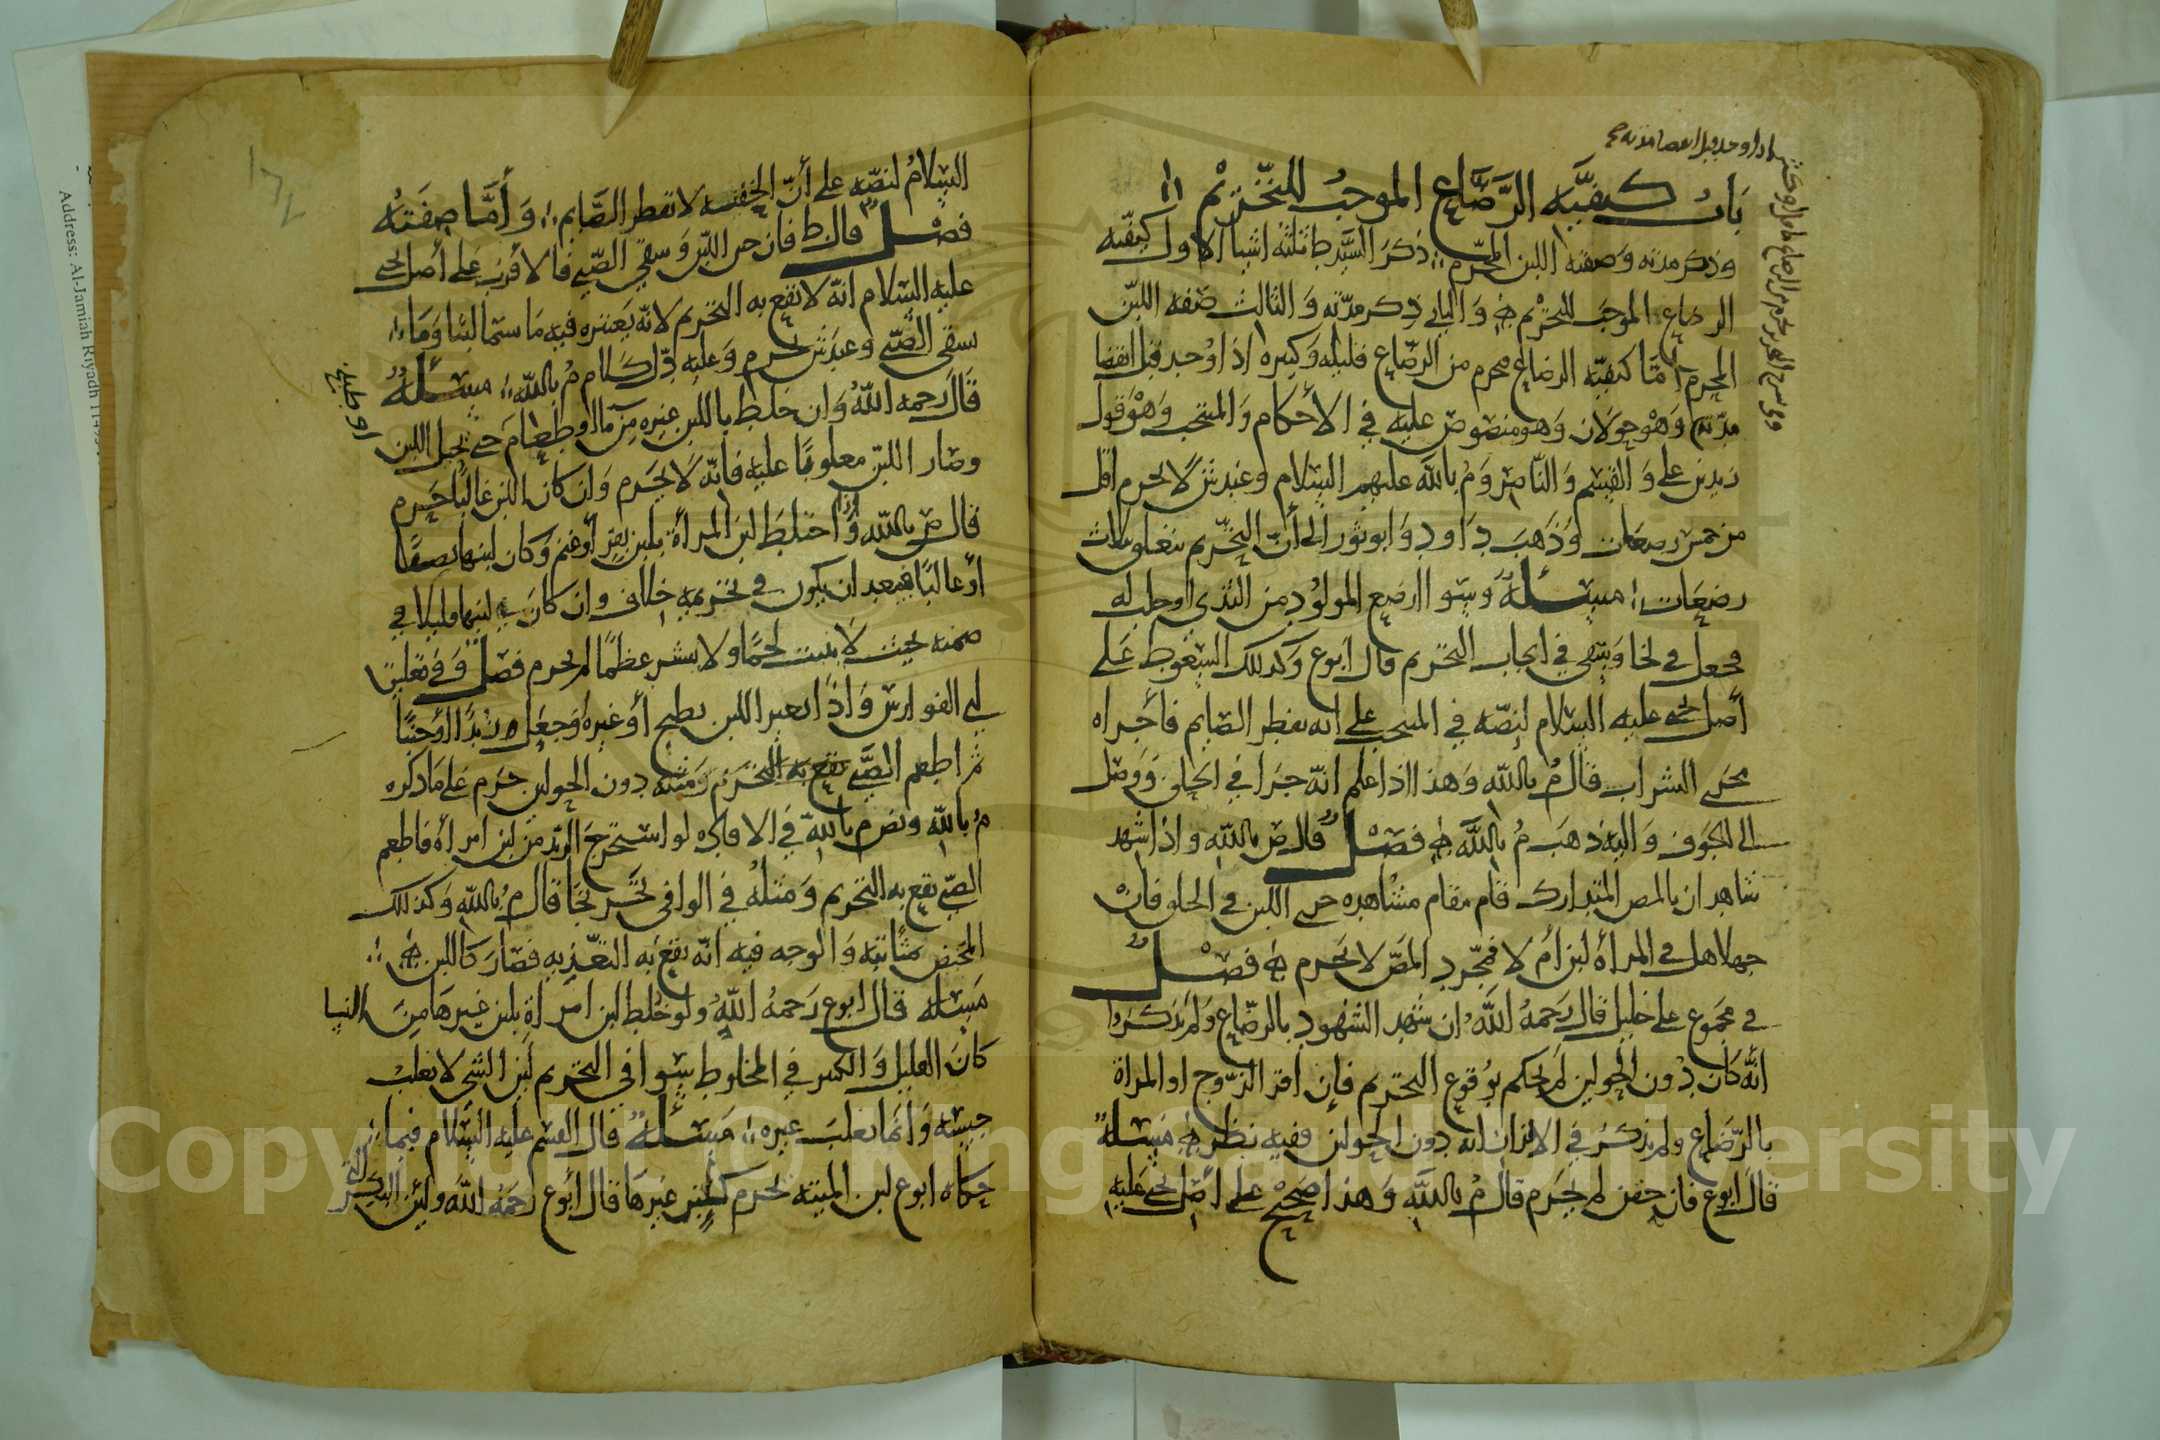 باب كيفية الرضاع الموجب للتحريم
وذكر مدته وصفته اللبن المحرم ذكر السيد ط ثلثة اشيا الاول كيفية
الرضاع الموجب للتحريم والثاني ذكر مدته والثالث صفه اللبن
المحرم أما كيفية الرضاع محرم من الرضاع قليله وكثيره اذا وجد قبل انقضا
مدته وهو حولان وهو منصوص عليه في الأحكام والمنتخب وهو قول
زيد بن علي والقسم والناصر وم بالله عليهم السلام وعند ش لا يحرم اقل
من خمس رضعات وذهب داود وابو ثور الى أن التحريم يتعلق بثلاث
رضعات مسئلة وسوا ارضع المولود من الثدي او حلب له
فجعل في وسقي في ايجاب التحريم قال ابوع وكذلك السعوط على
أصل يحيى عليه السلام لنصه في المنتخب على انه يفطر الصايم فأجراه
مجرى الشراب قال م بالله وهذا اذا علم انه جرا في الحلق ووصل
الى الجوف واليه ذهب م بالله فصل قال ض بالله واذا شهد
شاهدان بالمص المتدارك قام مقام مشاهده جري اللبن في الحلق فان
جهلا هل في المرأه لبن أم لا فمجرد المص لا يحرم فصل
في مجموع علي خليل قال رحمه الله ان شهد الشهود بالرضاع ولم يذكروا
انه كان دون الحولين لم يحكم بوقوع التحريم فإن أقر الزوج او المراة
بالرضاع ولم يذكر في الاقرار انه دون الحولين ففيه نظر مسئلة
قال ابوع فان حقن لم يحرم قال م بالله وهذا صحيح على أصل يحيى عليه
السلام لنصه على أن الحقنه لا تفطر الصايم وأما صفته
فصل قال ط فان جبن اللبن وسقي الصبي فالاقرب على أصل يحيى
عليه السلام انه لا يقع به التحريم لانه يعتبر فيه ما سما لبنا وما
سقى الصبي وعند ش يحرم وعليه دل كلام م بالله مسئلة
قال رحمه الله وان خلط باللبن غيره من ما او طعام حتى اللبن
او طبيخ
وصار اللبن مغلوبا عليه فانه لا يحرم وان كان اللبن غالبا حرم
قال ض بالله واذا اختلط لبن المرأة بلبن بقر أو غنم وكان لبنها نصفا
أو غالبا فيبعد ان يكون في تحريمه خلاف وان كان لبنها قليلا في
ضمنه بحيث لا ينبت لحما ولا ينشر عظما لم يحرم فصل وفي تعليق
ابي الفوارس واذا تغير اللبن بطبخ أو غيره وجعل زبدا أو جبنا
ثم اطعم الصبي يقع به التحريم ومثله دون الحولين حرم على ما ذكره
م بالله ونص م بالله في الافاده لو استخرج الزبد من لبن امرأه فاطعم
الصبي يقع به التحريم ومثله في الوافي قال م بالله وكذلك
المخض بمثابته والوجه فيه انه يقع به التغذيه فصار كاللبن
مسئله قال ابوع رحمه الله ولو خلط لبن امراة بلبن غيرها من النسا
كان القليل والكثير في المخلوط سوا في التحريم لان الشي لا يغلب
جنسه وانما يغلب غيره مسئلة قال القسم عليه السلام فيما
حكاه ابوع لبن الميته يحرم كلبن غيرها قال أبوع رحمه الله ولبن البكر